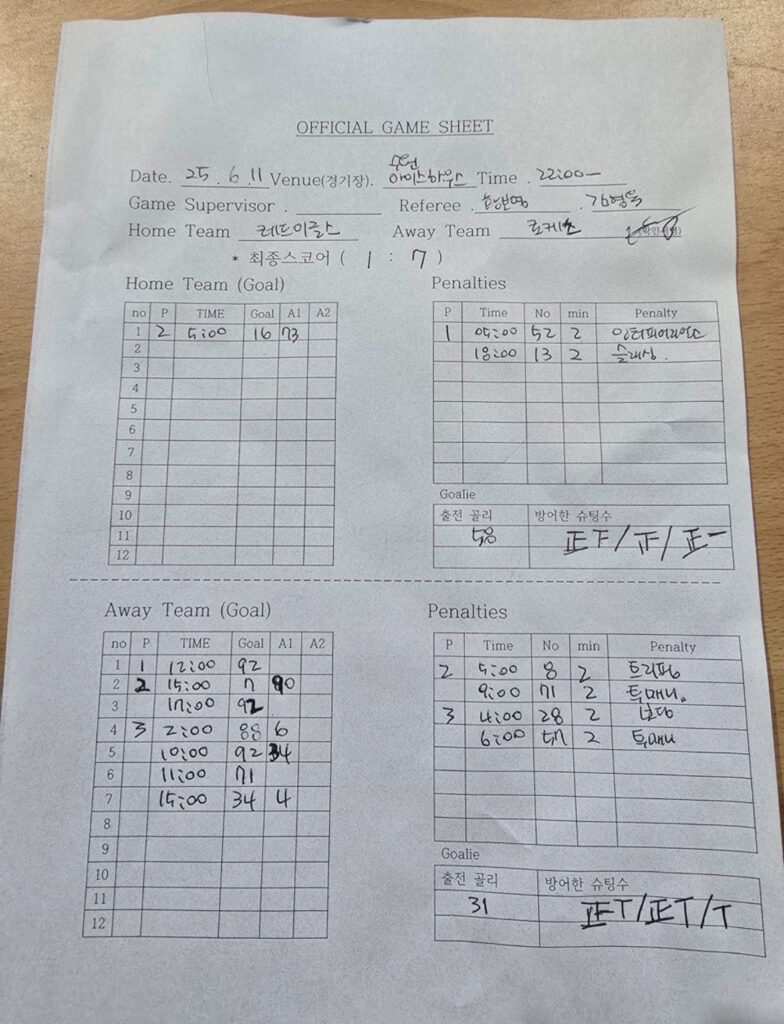 OFFICIAL GAME SHEET
Date. 25 . 6 . 11 Venue(경기장). 수원 아이스하우스 Time . 22:00-
Game Supervisor . Referee .
Home Team 레드이글스 Away Team 로케츠
* 최종스코어 ( 1 : 7 )
Home Team (Goal) Penalties
no P TIME Goal A1 A2
1 2 5:00 16 73
2
3
4
5
6
7
8
9
10
11
12
P Time No min Penalty
1 05:00 52 2 인터피어런스
18:00 13 2 슬래싱.
Goalie
출전 골리 방어한 슈팅수
58 正下/正/正一
Away Team (Goal) Penalties
no P TIME Goal A1 A2
1 1 12:00 92
2 2 15:00 7 90
3 17:00 92
4 3 2:00 88 6
5 10:00 92 34
6 11:00 71
7 15:00 34 4
8
9
10
11
12
P Time No min Penalty
2 5:00 8 2 트리핑
9:00 71 2 투매니.
3 4:00 28 2 보딩
6:00 57 2 투매니
Goalie
출전 골리 방어한 슈팅수
31 正T/正T/T